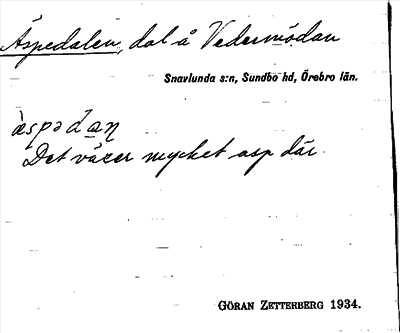 Äspedalen, dal å Vedermödan
Snavlunda s:n, Sundbo hd, Örebro län.
æ̀spədaɳ
Det växer mycket asp där.
GÖRAN ZETTERBERG 1934.